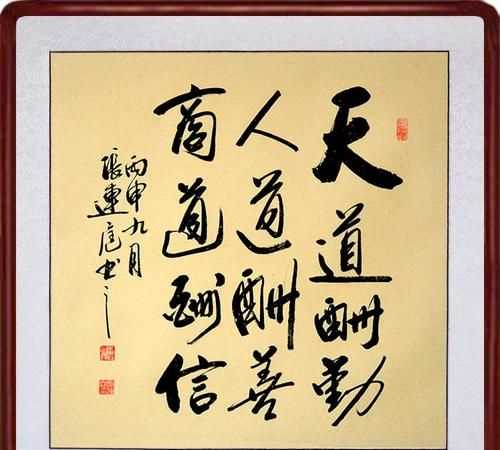 天道酬勤
人道酬善
商道酬信
丙申九月
張連庭书